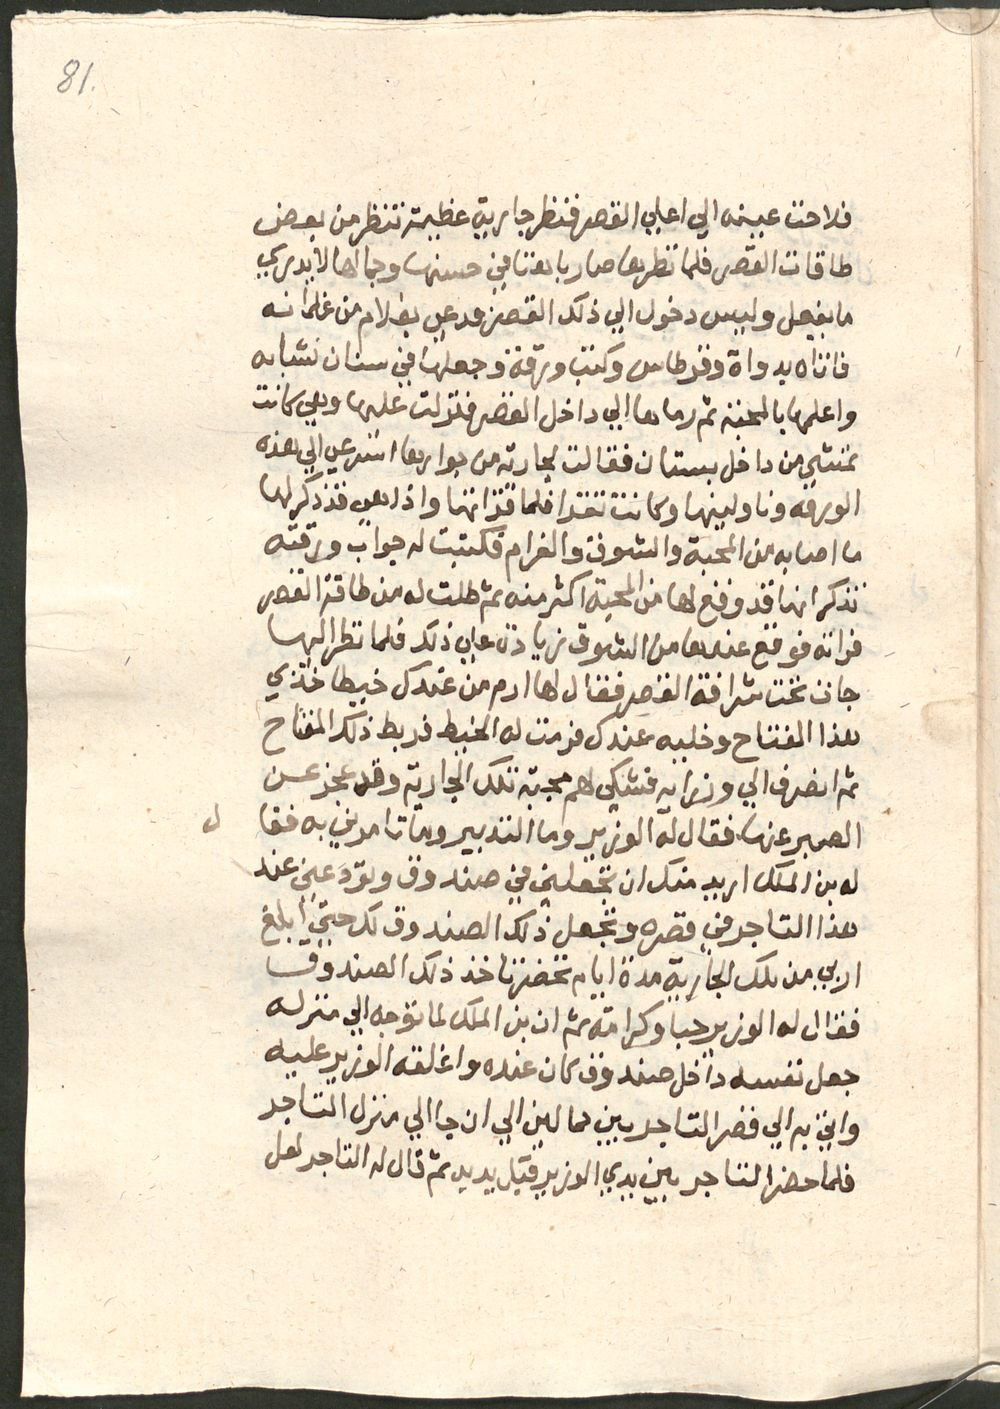 81.
فلاحت عينه الي اعلي القصر فنظر جارية عظيمة تنظر من بعض
طاقات القصر فلما نظرها صار باهتا في حسنها وجمالها لا يدري
ما يفعل وليس دخول الي ذلك القصر فدعي بغلام من غلمانه
فاتاه بدواة وقرطاس وكتب ورقة وجعلها في سنان نشابه
واعلمها بالمحبة ثم رماها الي داخل القصر فنزلت عليها وهي كانت
تمشي من داخل بستان فقالت لجارية من جوارها اسرعي الي هذه
الورقه وناولينها وكانت تقرا فلما قراتها واذا هي قد ذكر لها
ما اصابه من المحبة والشوق والغرام فكتبت له جواب ورقته
تذكر انها قد وقع لها من المحبة اكثر منه ثم طلت له من طاقة القصر
فراته فوقع عندها من الشوق زيادة علي ذلك فلما نظر اليها
جات تحت شرافة القصر فقال لها ارم من عندك خيطا خذي
هذا المفتاح وخليه عندك فرمت له الخيط فربط ذلك المفتاح
ثم انصرف الي وزرايه فشكي لهم محبة تلك الجارية وقد عجز عن
الصبر عنها فقال له الوزير وما التدبير وما تامرني به فقا ل
له بن الملك اريد منك ان تجعلني في صندوق وتودعني عند
هذا التاجر في قصره وتجعل ذلك الصندوق لك حتي ابلغ
اربي من تلك الجارية مدة ايام تحضر تاخذ ذلك الصندوقا
فقال له الوزير حبا وكرامة ثم ان بن الملك لما توجه الي منزله
جعل نفسه داخل صندوق كان عنده واغلقه الوزير عليه
واتي به الي قصر التاجر بين حمالين الي ان جا الي منزل التاجر
فلما حضر التاجر بين يدي الوزير قبل يديه ثم قال له التاجر لعل